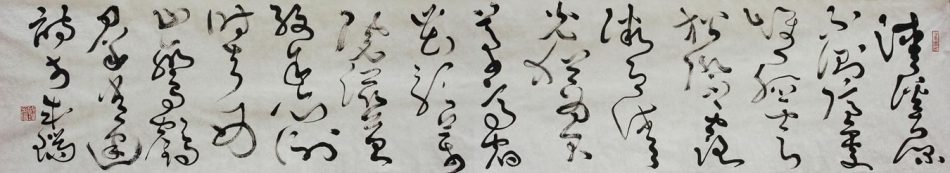 清溪深
不測隱處
唯孤雲
松際露
微月清
光猶為君
茅亭宿
花影藥
院滋苔
紋余亦謝
時去西
山鸞鶴
群常建
詩